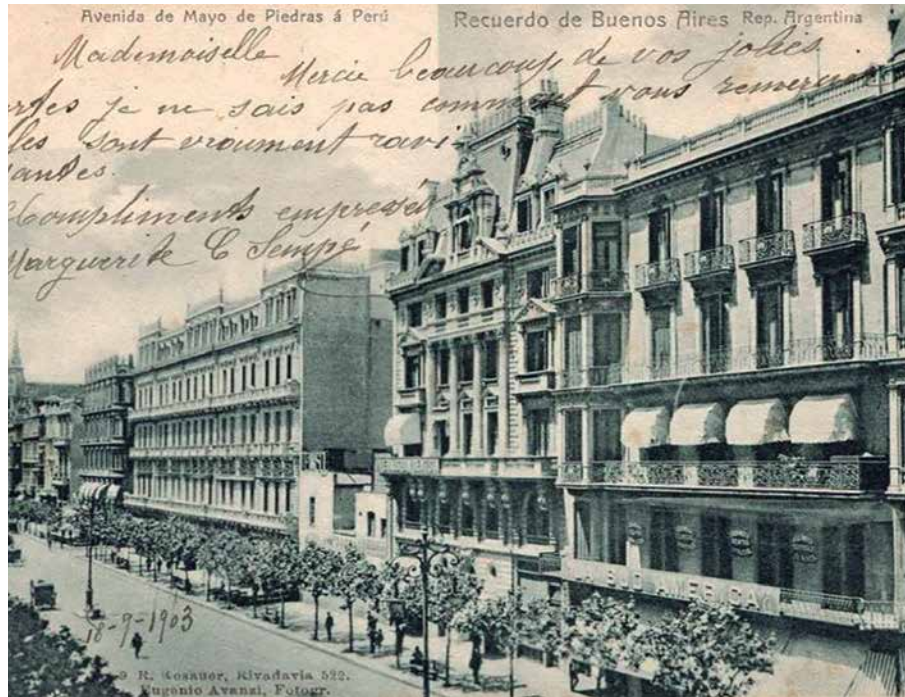 Avenida de Mayo de Piedras á Perú
Recuerdo de Buenos Aires Rep. Argentina
Mademoiselle
Mercie beaucoup de vos jolies
je ne sais pas comment vous
sont vraument ravi-
Compliments empressés
Marguerite C Sempé
18-9-1903
R. Rosauer, Rivadavia 522.
Eugenio Avanzi, Fotogr.